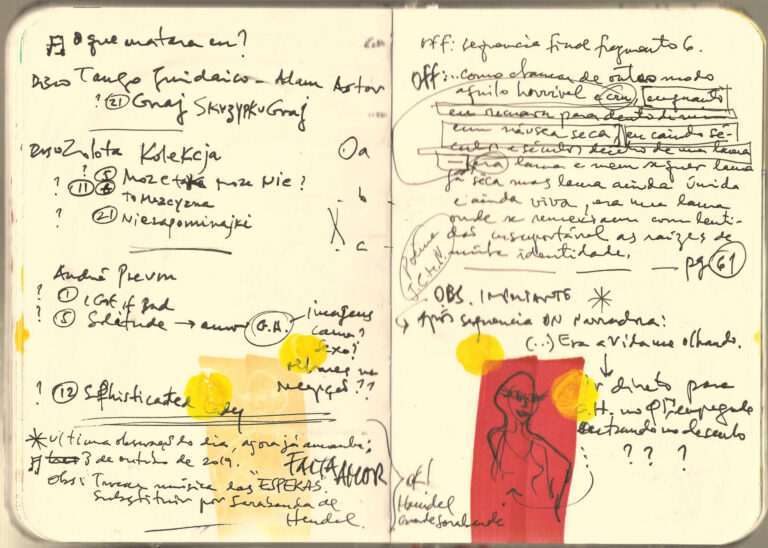 O que matara eu?
DISCO Tango Judaico - Adam Aston
? 21 Graj SKRZYPKU Graj
DISCO Zlota Kolekcja
? 5 Moze moze Nie?
? 11 Tomaszyczna
? 21 Niezapominajki
a
b
c
André Previn
? 1
? 5 Solitude → amor G.H.
imagens
cama?
sexo?
? 12 Sophisticated Lady
* última observação do dia, agora já amanhã:
3 de outubro de 2019.
FALTA AMOR
Obs: Trocar música das "ESPERAS.
Substituir por Sarabanda de
Hendel.
OK!
Haendel
Grande Sarabande
OFF: sequencia final fragmento 6.
OFF: ...como chamar de outro modo
aquilo horrível e cru, enquanto
eu recuava para dentro de mim
em náusea seca, eu caindo sé-
culos e séculos dentro de uma lama
— era lama e nem sequer lama
já seca mas lama ainda úmida
e ainda viva, era uma lama
onde se remexiam com lenti-
dão insuportável as raízes de
minha identidade.
pg 61
OBS. IMPORTANTE *
Após sequencia ON narradora:
(...) Era a vida me olhando.
ir direto para
G.H. no empregada
entrando no deserto
? ? ?